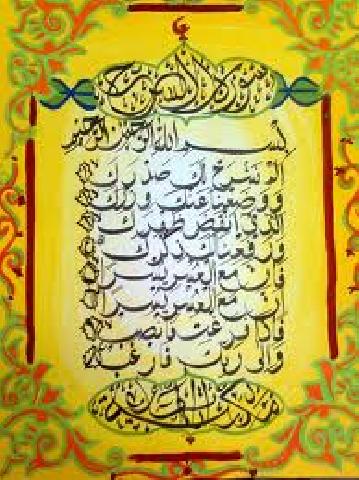 سورة الانشرح
بسم الله الرحمن الرحيم
الم نشرح لك صدرك
ووضعنا عنك وزرك
الذي انقض ظهرك
ورفعنا لك ذكرك
فان مع العسر يسرا
ان مع العسر يسرا
فاذا فرغت فانصب
والى ربك فارغب